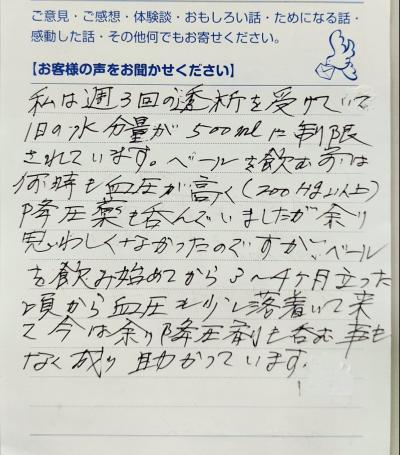 ご意見・ご感想・体験談・おもしろい話・ためになる話・
感動した話・その他何でもお寄せください。
【お客様の声をお聞かせください】
私は週3回の透析を受けていて
1日の水分量が500mlに制限
されています。ベールを飲む前は
何時も血圧が高く(200Hg以上)
降圧薬も呑んでいましたが余り
思わしくなかったのですがベール
を飲み始めてから3〜4ヶ月立った
頃から血圧も少し落着いて来
て今は余り降圧剤も呑む事も
なく成り助かっています.